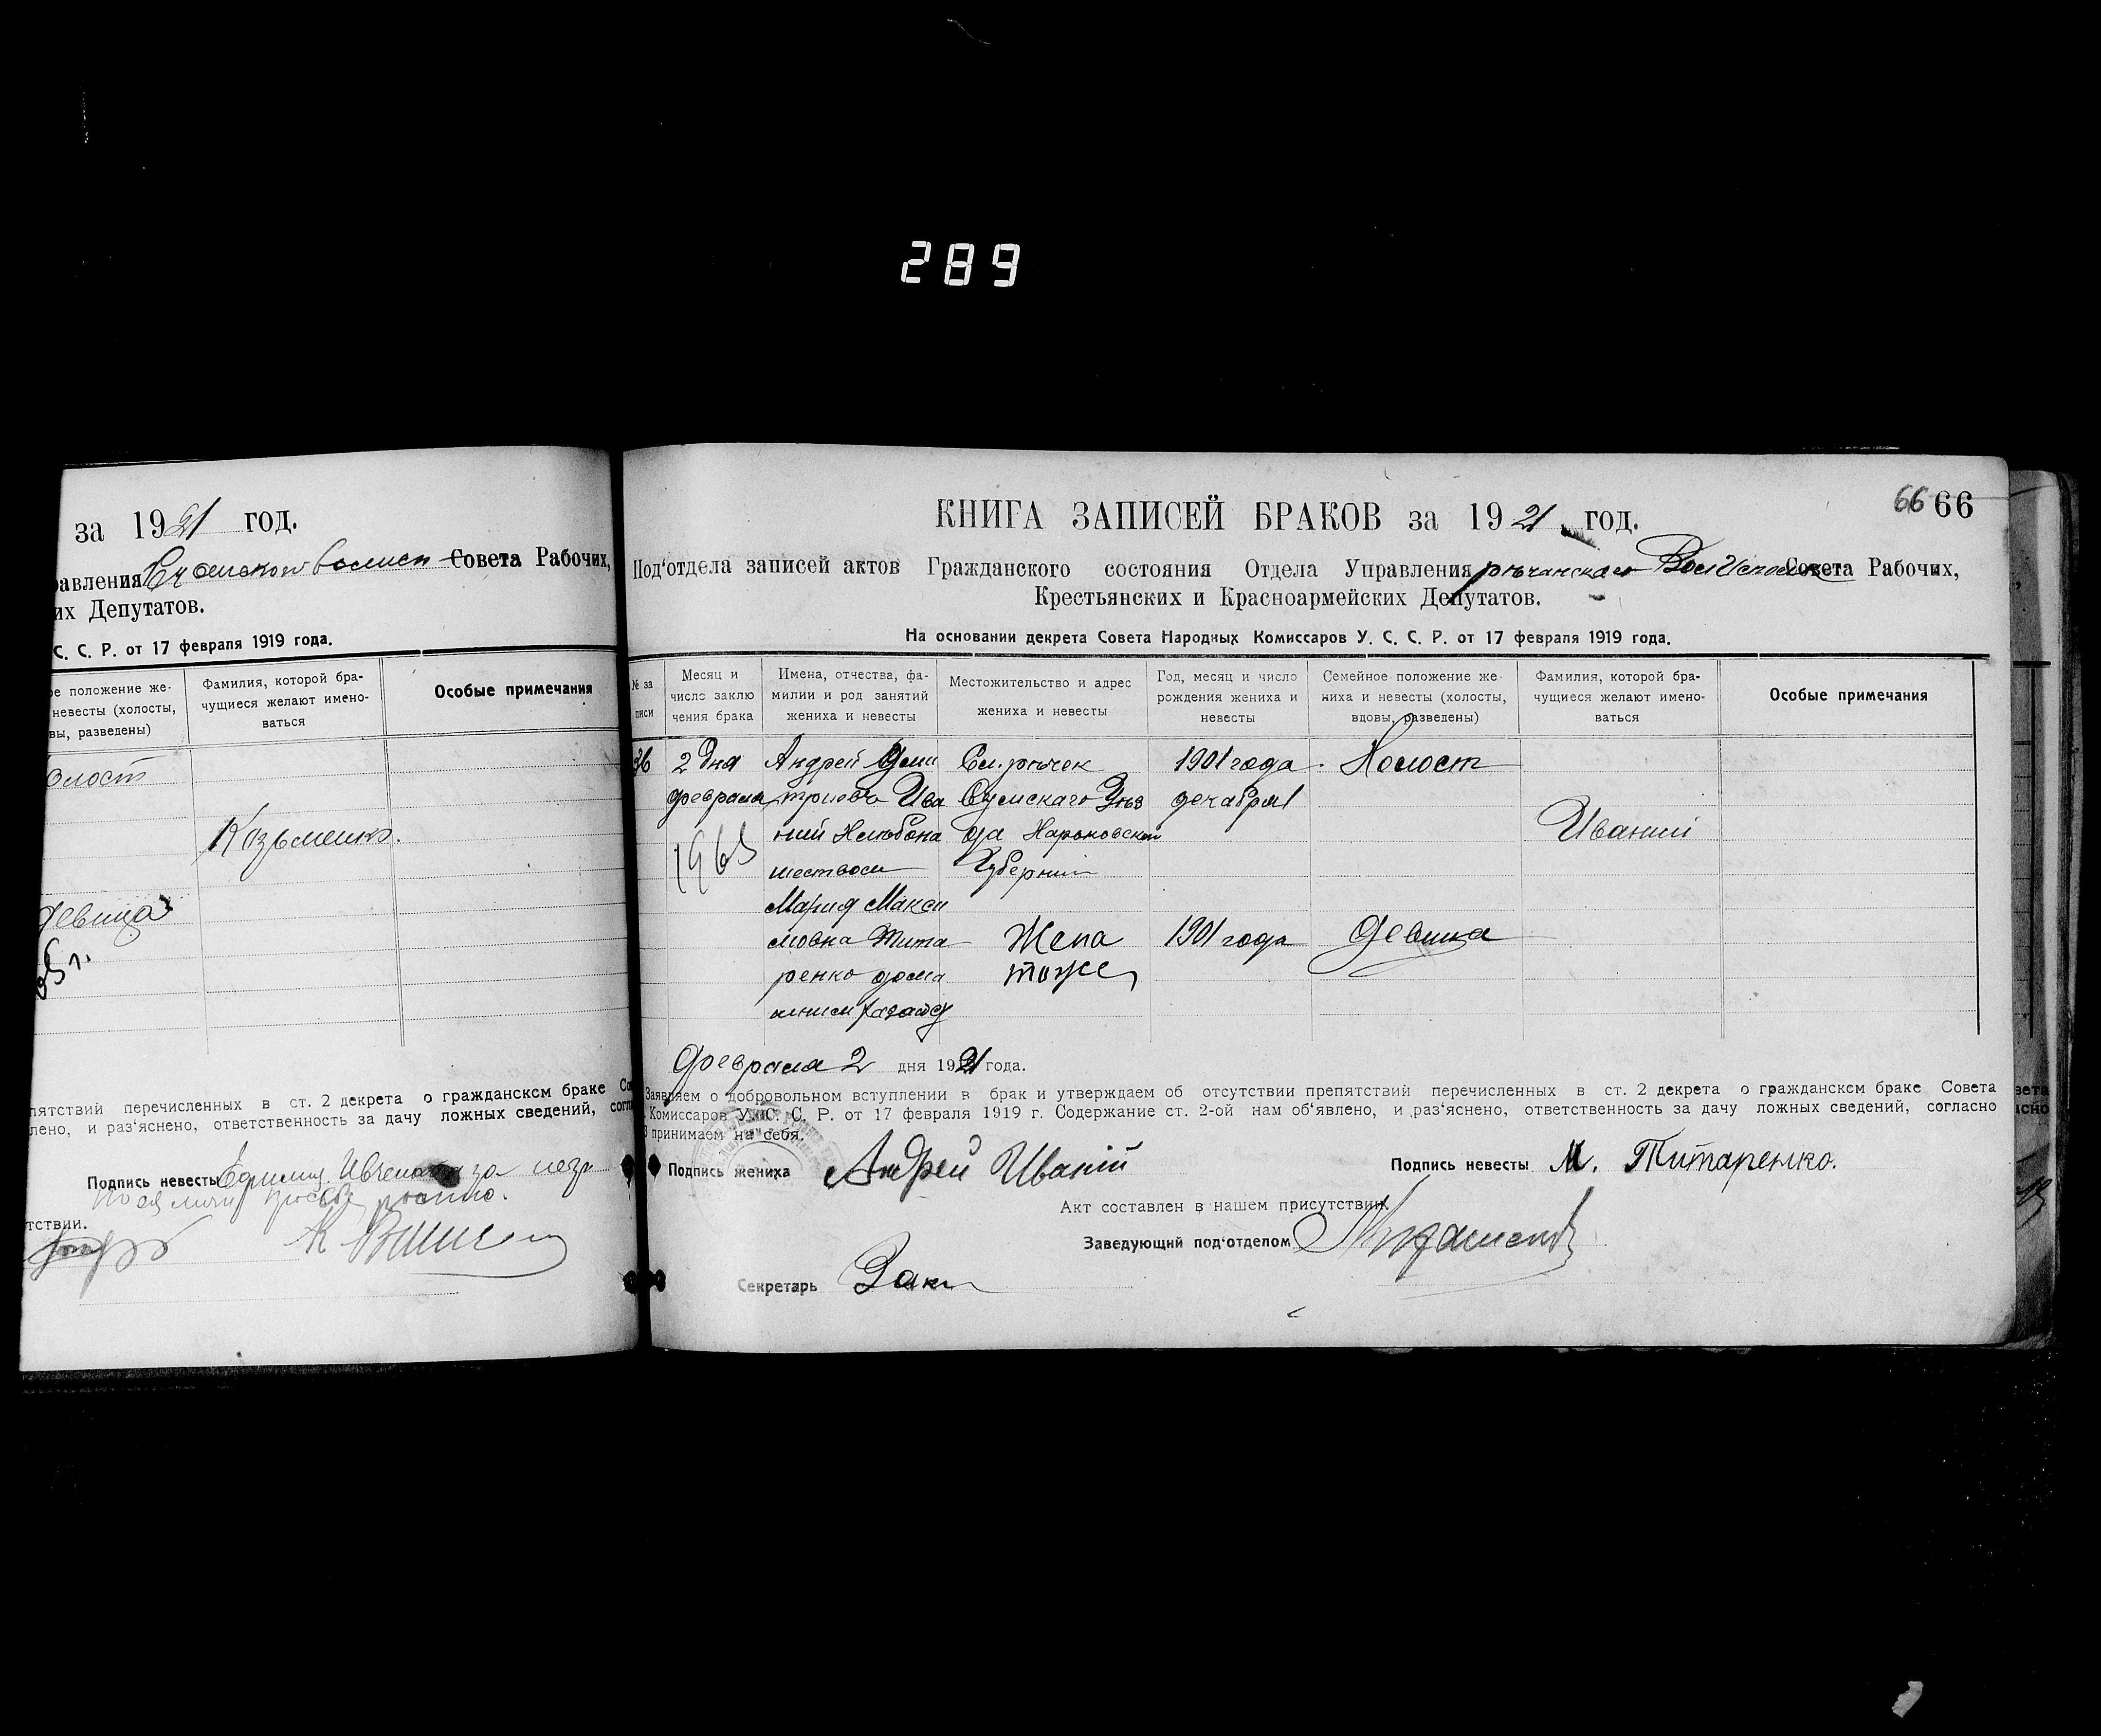 289
за 1921 год.
равления Совета Рабочих,
их Депутатов.
С. С. Р. от 17 февраля 1919 года.
ое положение же-
невесты (холосты,
вы, разведены)
Фамилия, которой бра-
чущиеся желают имено-
ваться
Особые примечания
олост
Козьменко.
девица
пятствий перечисленных в ст. 2 декрета о гражданском браке Со
лено, и раз'яснено, ответственность за дачу ложных сведений, согла
Подпись невесты за
тствии.
66 66
КНИГА ЗАПИСЕЙ БРАКОВ за 1921 год.
Под'отдела записей актов Гражданского состояния Отдела Управления рѣчанскаго ВолИсполк Совета Рабочих,
Крестьянских и Красноармейских Депутатов.
На основании декрета Совета Народных Комиссаров У. С. С. Р. от 17 февраля 1919 года.
№ за
писи
Месяц и
число заклю
чения брака
Имена, отчества, фа-
милии и род занятий
жениха и невесты
Местожительство и адрес
жениха и невесты
Год, месяц и число
рождения жениха и
невесты
Семейное положение же-
ниха и невесты (холосты,
вдовы, разведены)
Фамилия, которой бра-
чущиеся желают имено-
ваться
Особые примечания
36
2 дня
февраля
Андрей Дми
триевъ Ива
ний Хлѣбопа
шеством
Сл. рѣчек
Сумскаго Уѣз
да Харьковской
Губернии
1901 года
декабря
Холост
Иваний
Мария Макси
мовна Тита
ренко дома
Жена
тоже
1901 года
девица
февраля 2 дня 1921 года.
Заявляем о добровольном вступлении в брак и утверждаем об отсутствии препятствий перечисленных в ст. 2 декрета о гражданском браке Совета
Комиссаров У. С. С. Р. от 17 февраля 1919 г. Содержание ст. 2-ой нам об'явлено, и раз'яснено, ответственность за дачу ложных сведений, согласно
принимаем на себя.
Подпись жениха Андрей Иваній
Подпись невесты М. Титаренко.
Акт составлен в нашем присутствии.
Заведующий под'отделом
Секретарь